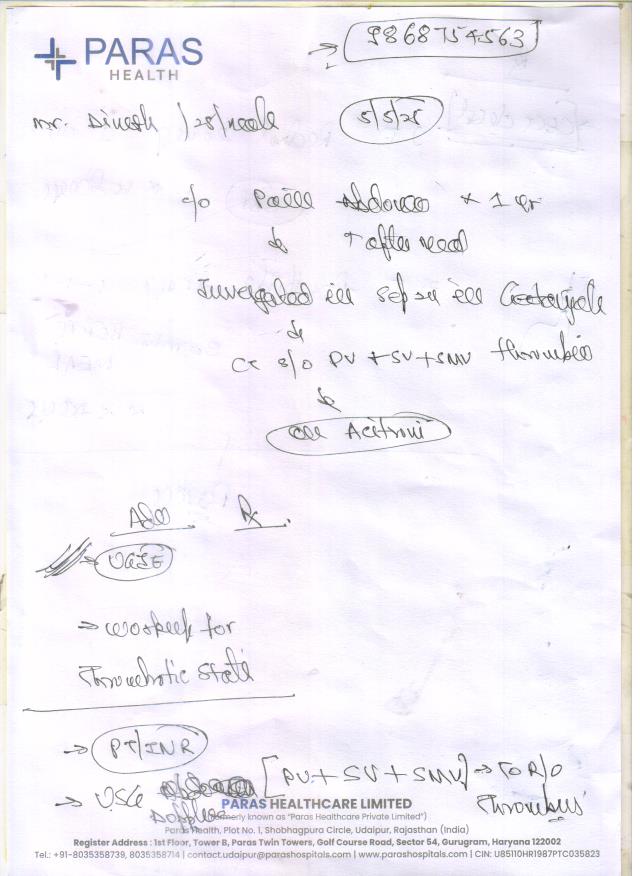 PARAS
HEALTH
→ 9868754563
mr. Dinesh /28/male 5/5/25
c/o Pain Abdomen × 1 yr
↑ after meal
in
CT s/o PV + SV + SMV thrombus
on Acitrom
Adv Rx
→ UGIE
→ workup for
Thrombotic state
→ PT/INR
→ USG Doppler [PV + SV + SMV] → To R/O
Thrombus
PARAS HEALTHCARE LIMITED
(Formerly known as "Paras Healthcare Private Limited")
Paras Health, Plot No. 1, Shobhagpura Circle, Udaipur, Rajasthan (India)
Register Address : 1st Floor, Tower B, Paras Twin Towers, Golf Course Road, Sector 54, Gurugram, Haryana 122002
Tel.: +91-8035358739, 8035358714 | contact.udaipur@parashospitals.com | www.parashospitals.com | CIN: U85110HR1987PTC035823